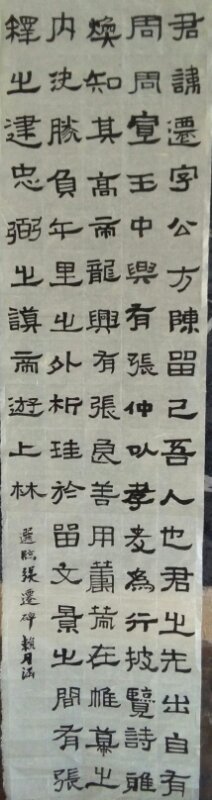 君諱遷字公方陳留己吾人也君之先出自有
周周宣王中興有張仲以孝友為行披覽詩雅
煥知其高帝龍興有張良善用籌策在帷幕之
内決勝負千里之外析珪於留文景之間有張
釋之建忠弼之謨帝遊上林
選臨張遷碑 賴月滿